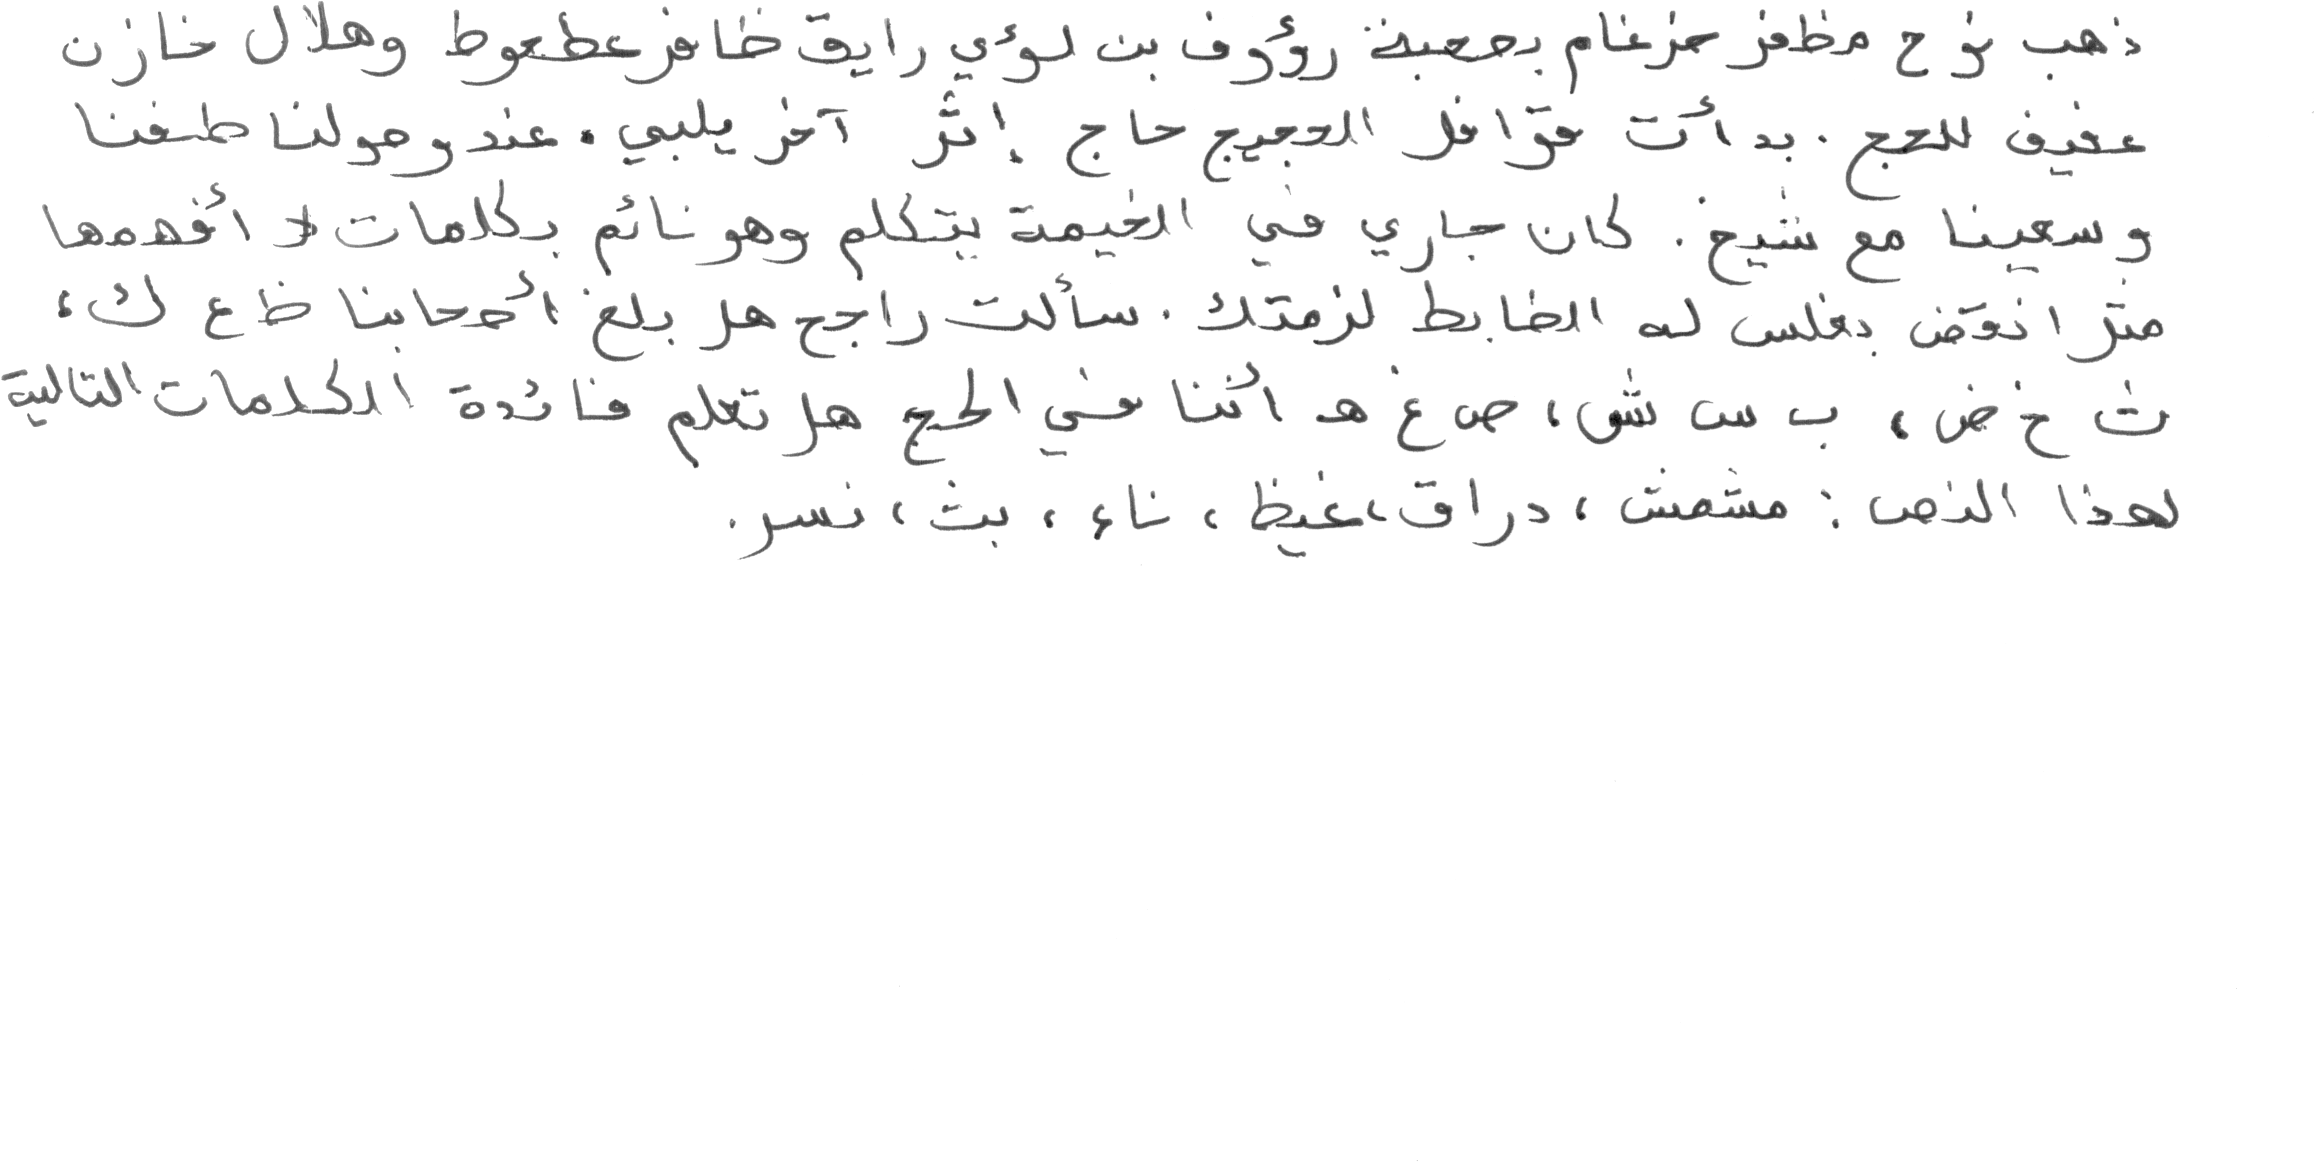 ذهب نوح مظفر ضرغام بصحبة رؤوف بن لؤي رايق ظافر عطعوط وهلال خازن
عفيف للحج . بدأت قوافل الحجيج حاج إثر آخر يلبي . عند وصولنا طفنا
وسعينا مع شيخ . كان جاري في الخيمة يتكلم وهو نائم بكلمات لا أفهمها
مثل انقض بغلس له الضابط لزمتك . سألت راجح هل بلغ أصحابنا ظ ع ك ،
ث خ ض ، ب س ش ، ص غ هـ أننا في الحج هل تعلم فائدة الكلمات التالية
لهذا النص : مشمش ، دراق ، غيظ ، ناء ، بث ، نسر .